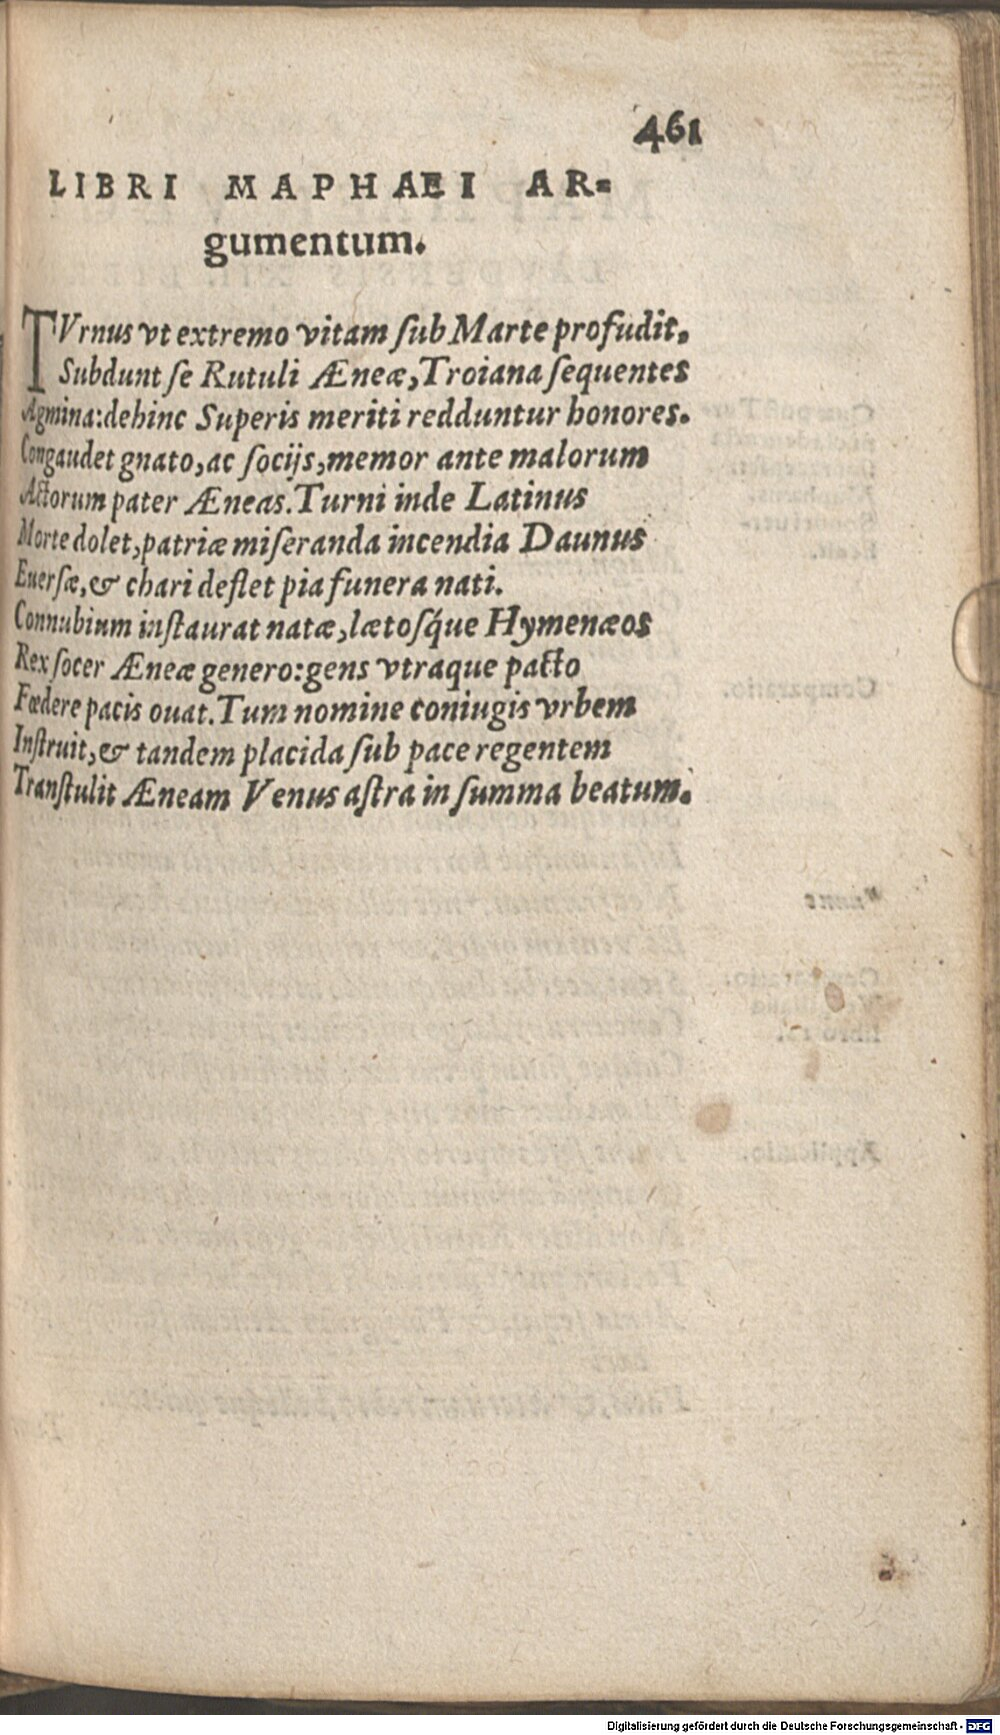 461
LIBRI MAPHAEI AR=
gumentum.
TVrnus vt extremo vitam ſub Marte profudit,
Subdunt ſe Rutuli Æneæ, Troiana ſequentes
Agmina: dehinc Superis meriti redduntur honores.
Congaudet gnato, ac ſocijs, memor ante malorum
Actorum pater Æneas. Turni inde Latinus
Morte dolet, patriæ miſeranda incendia Daunus
Euerſæ, & chari deflet pia funera nati.
Connubium inſtaurat natæ, lætoſq́ue Hymenæos
Rex ſocer Æneæ genero: gens vtraque pacto
Fœdere pacis ouat. Tum nomine coniugis vrbem
Inſtruit, & tandem placida ſub pace regentem
Tranſtulit Æneam Venus aſtra in ſumma beatum.
Digitalisierung gefördert durch die Deutsche Forschungsgemeinschaft - DFG